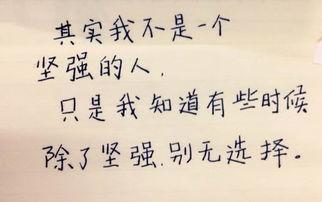 其实我不是一个
坚强的人，
只是我知道有些时候
除了坚强，别无选择。